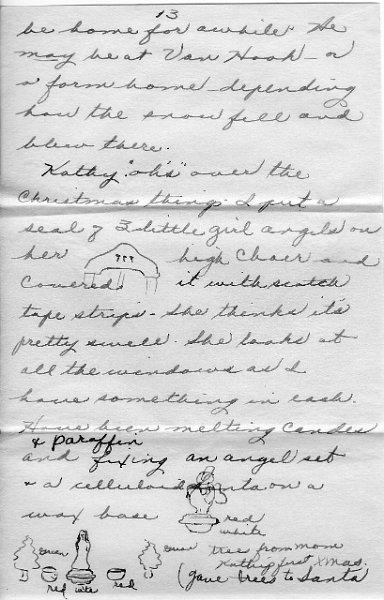 13
be home for awhile. He
may be at Van Hook - or
a farm home - depending
how the snow fell and
blew there.
Kathy "oh's" over the
Christmas things. I put a
seal of 3 little girl angels on
her high chair and
covered it with scotch
tape strips - she thinks it's
pretty swell. She looks at
all the windows as I
have something in each.
Have been melting candles
& paraffin
and fixing an angel set
& a celluloid Santa on a
wax base
red
white
green
green
red
white
red
trees from mom
Kathy's first Xmas.
(gave trees to Santa)